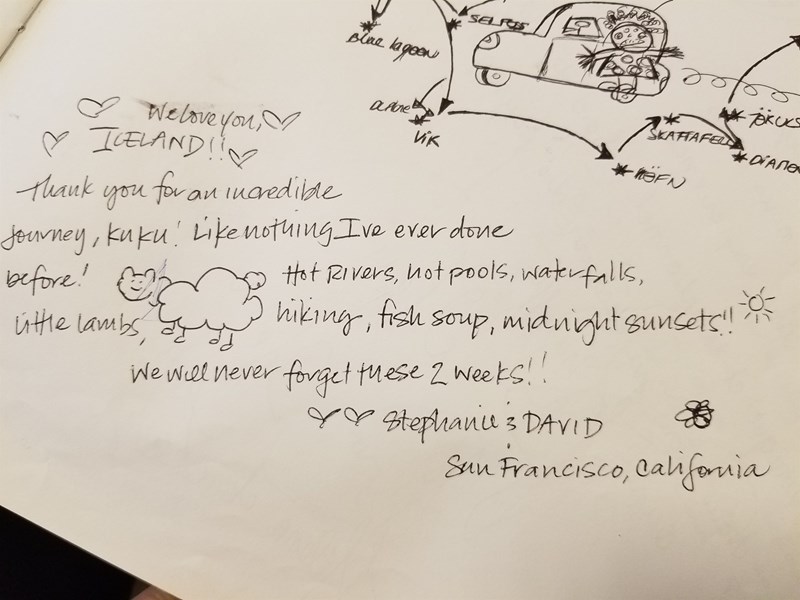 Blue lagoon
SELFOSS
VIK
HÖFN
SKAFTAFELL
JÖKUS
DIAMO
We love you,
ICELAND!!
Thank you for an incredible
journey, KUKU! Like nothing I've ever done
before! Hot Rivers, hot pools, waterfalls,
little lambs, hiking, fish soup, midnight sunsets!!
We will never forget these 2 weeks!!
Stephanie & DAVID
San Francisco, California